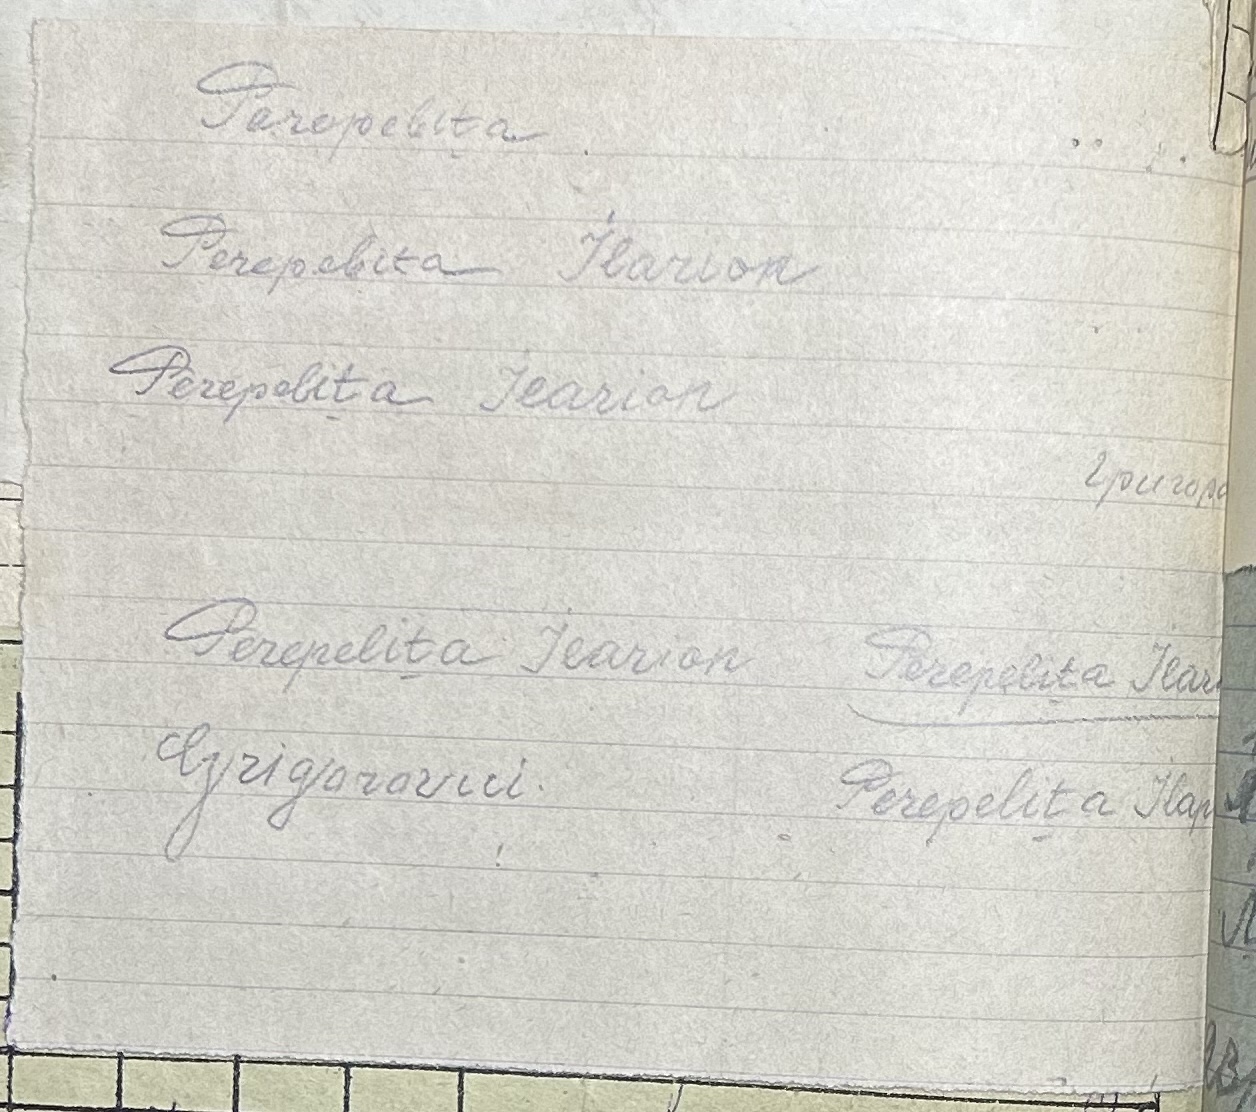 Perepelița
Perepelița Ilarion
Perepelița Ilarion
григоро
Perepelița Ilarion Perepelița Ilari
Grigorovici. Perepelița Ilар